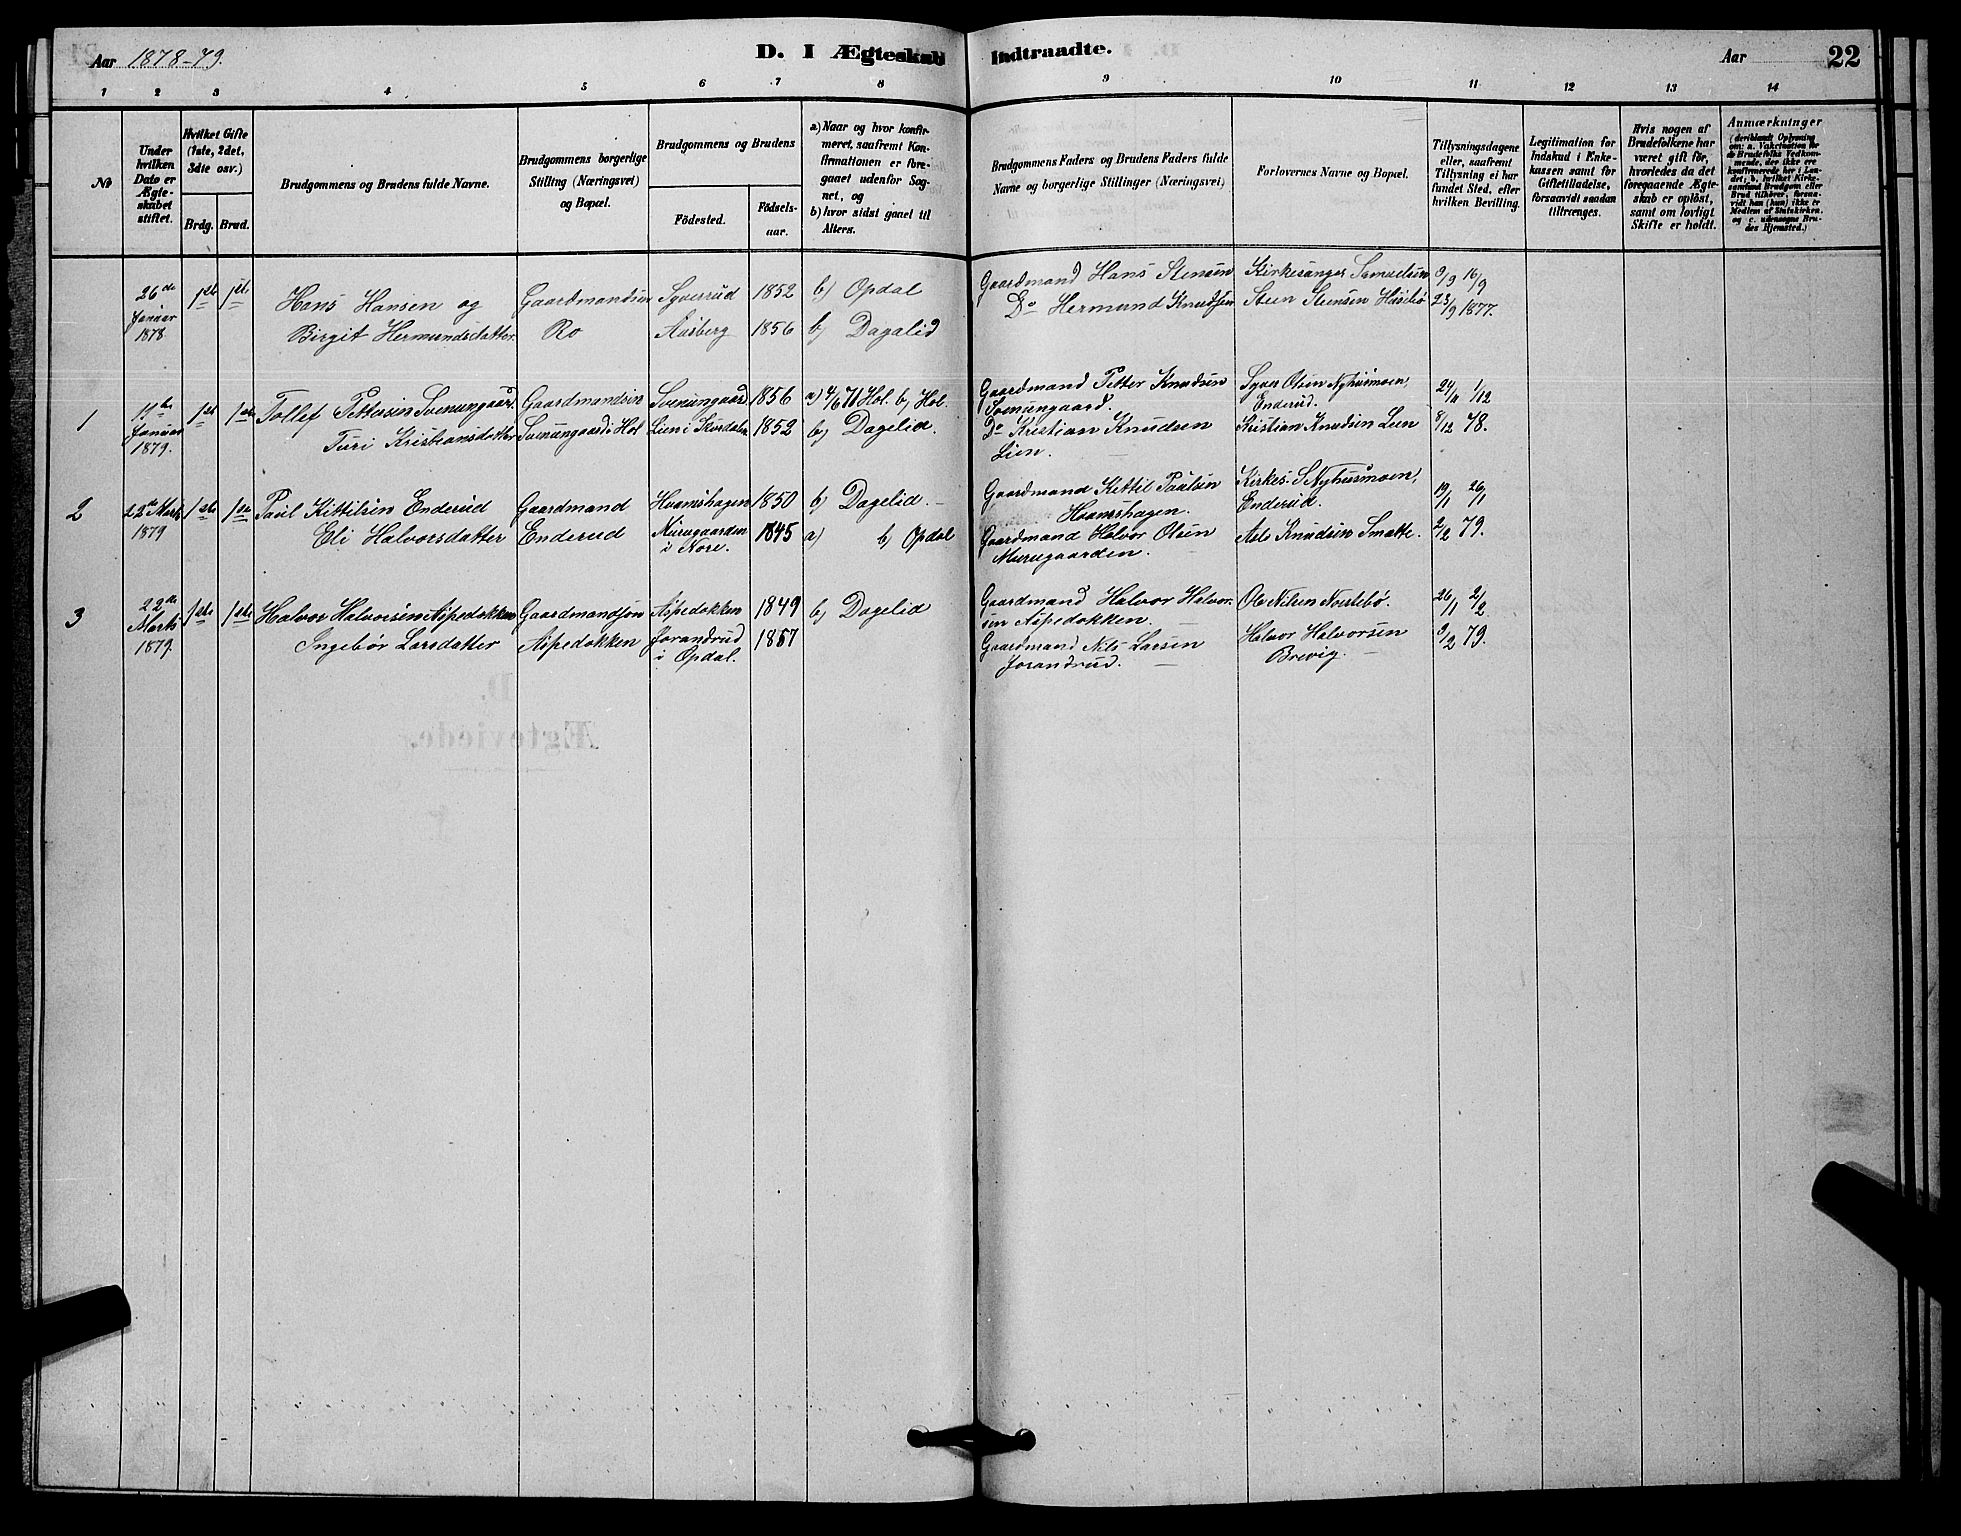 Aar 1878-79.
D. I Ægteskab Indtraadte.
Aar
22
1 2 3 4 5 6 7 8 9 10 11 12 13 14
No
Under
hvilken
Dato er
Ægte-
skabet
stiftet.
Hvilket Gifte
(1ste, 2det,
3die osv.)
Brdg. Brud.
Brudgommens og Brudens fulde Navne.
Brudgommens borgerlige
Stilling (Næringsvei)
og Bopæl.
Brudgommens og Brudens
Födested.
Födsels-
aar.
a) Naar og hvor konfir-
meret, saafremt Kon-
firmationen er fore-
gaaet udenfor Sog-
net, og
b) hvor sidst gaaet til
Alters.
Brudgommens Faders og Brudens Faders fulde
Navne og borgerlige Stillinger (Næringsvei)
Forlovernes Navne og Bopæl.
Tillysningsdagene
eller, saafremt
Tillysning ei har
fundet Sted, efter
hvilken Bevilling.
Legitimation for
Indskud i Enke-
kassen samt for
Giftetilladelse,
forsaavidt saadan
tiltrænges.
Hvis nogen af
Brudefolkene har
været gift för,
hvorledes da det
foregaaende Ægte-
skab er oplöst,
samt om lovligt
Skifte er holdt.
Anmærkninger
(deriblandt Oplysning
om: a. Vakcination for
de Brudefolks Vedkom-
mende, der ikke ere
konfirmerede her i Lan-
det; b. hvilket Kirke-
samfund Brudgom eller
Brud tilhörer, forsaa-
vidt han (hun) ikke er
Medlem af Statskirken.
og c. udensogns Bru-
des Hjemsted.)
26de Januar 1878 1ste 1ste Hans Hansen og Gaardmandsön Syverrud 1852 b) Opdal Gaardmand Hans Stensen Kirkesanger Samuelsen 9/9 16/9
Birgit Hermundsdatter. Ro Aasberg 1856 b) Dagalid Do Hermund Knudsen Steen Stensen Husebö 23/9 1877.
1 Januar 1879. 1ste 1ste Tollef Pettersen Svenungaard. Gaardmandsön Svenungaard 1856 a) 4/6 71 Hol. b) Hol. Gaardmand Petter Knudsen Svenungaard. Syver Olsen Nyhusmoen, Enderud. 24/11 1/12
Turi Kristiansdatter Svenungaard i Hol Lien i Skurdalen 1852 b) Dagelid. Do Kristian Knudsen Lien. Kristian Knudsen Lien 8/12 78.
2 22de Marts 1879 1ste 1ste Paul Kittilsen Enderud Gaardmand Hvamshagen 1850 b) Dagelid. Gaardmand Kittil Paulsen Hvamshagen. Kirkes. S Nyhusmoen, Enderud. 19/1 26/1
Eli Halvorsdatter Enderud i Nore. 1845 a) b) Opdal Gaardmand Halvor Olsen Murugaarden. Asle Knudsen Smatte. 2/2 79.
3 22de Marts 1879. 1ste 1ste Halvor Halvorsen Aspedokken Gaardmandsön Aspedokken 1849 b) Dagelid Gaardmand Halvor Halvorsen Aspedokken. Ole Nilsen Norstebö. 26/1 2/2
Ingebör Larsdatter Aspedokken Jorandrud i Opdal. 1857 Gaardmand Nils Larsen Jorandrud. Halvor Halvorsen Brevig. 9/2 79.
D.
Ægteviede.